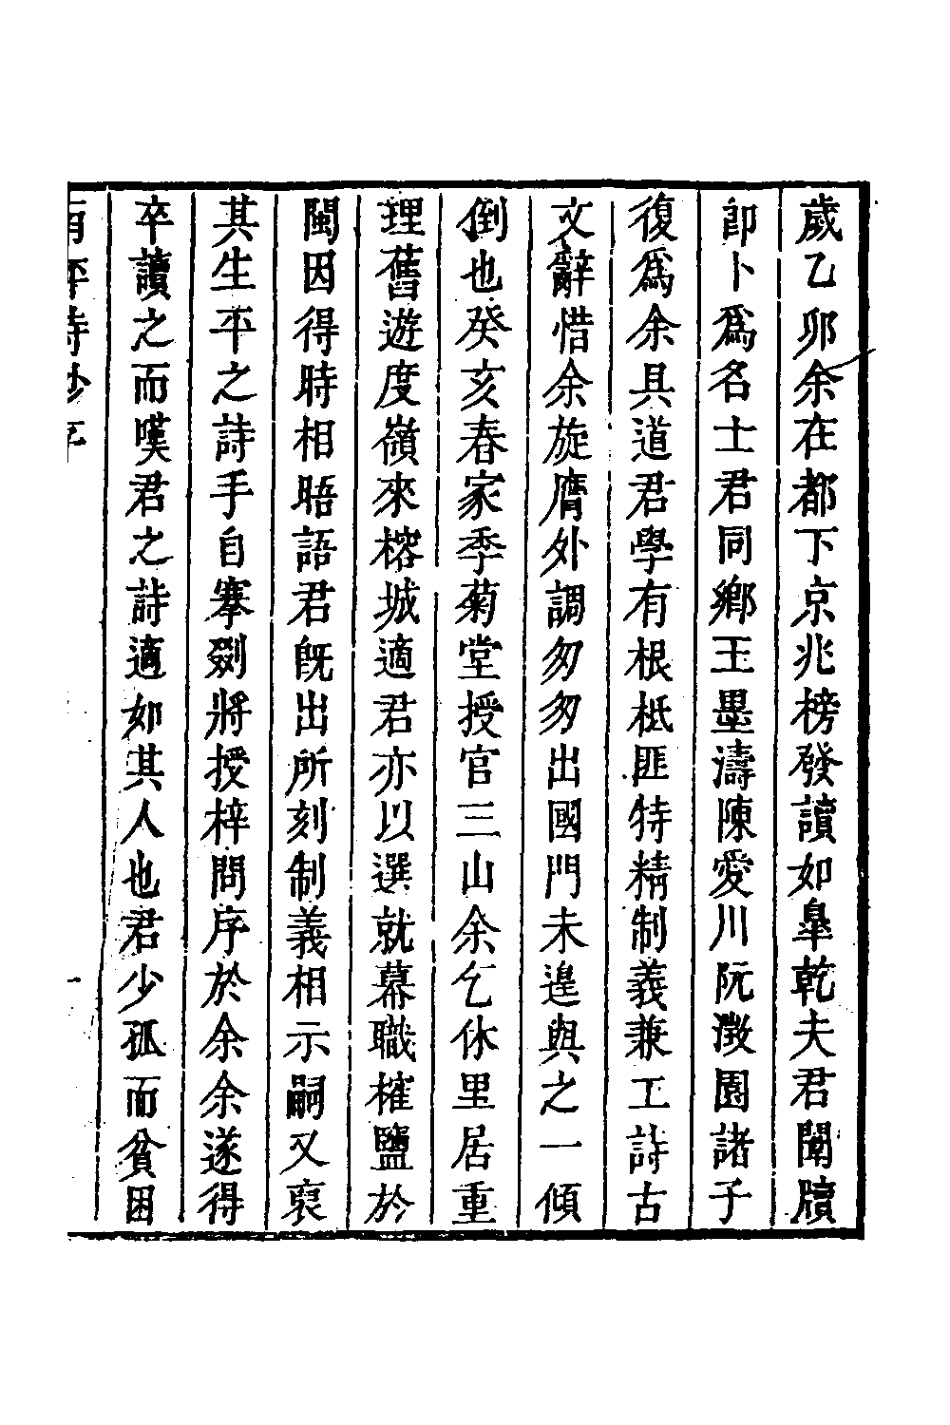 歲乙卯余在都下京兆榜發讀如臯乾夫君闈牘
卽卜爲名士君同鄉王墨濤陳愛川阮澂園諸子
復爲余具道君學有根柢匪特精制義兼工詩古
文辭惜余旋膺外調匆匆出國門未遑與之一傾
倒也癸亥春家季菊堂授官三山余乞休里居重
理舊遊度嶺來榕城適君亦以選就幕職榷鹽於
閩因得時相晤語君旣出所刻制義相示嗣又裒
其生平之詩手自搴劉將授梓問序於余余遂得
卒讀之而嘆君之詩適如其人也君少孤而貧困
一